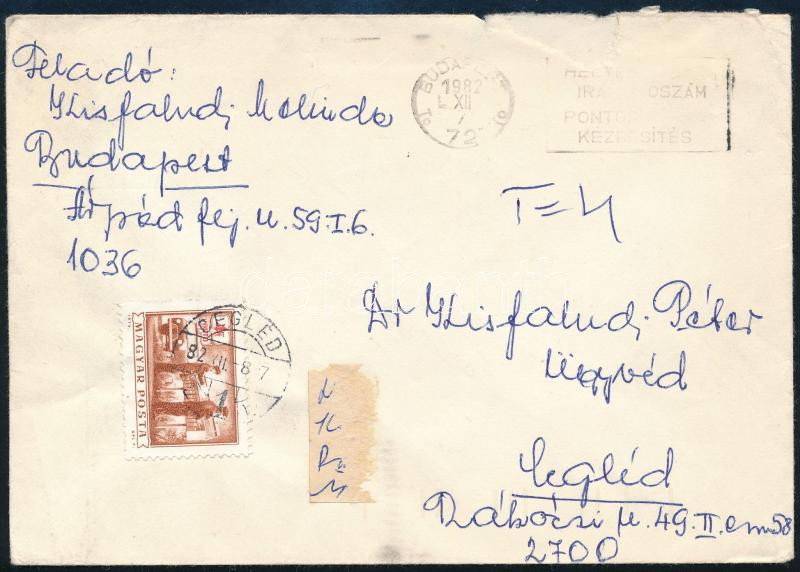 Feladó:
Kisfaludi Melinda
Budapest
Árpád fej. u. 59. I. 6.
1036
BUDAPEST
1982
XII
7
72
IRÁ OSZÁM
PONTOS
KEZBESÍTÉS
T=4
Dr Kisfaludi Péter
Ügyvéd
Cegléd
Rákóczi u. 49. II. em 58
2700
CEGLÉD
82. XII. 8-7
MAGYAR POSTA